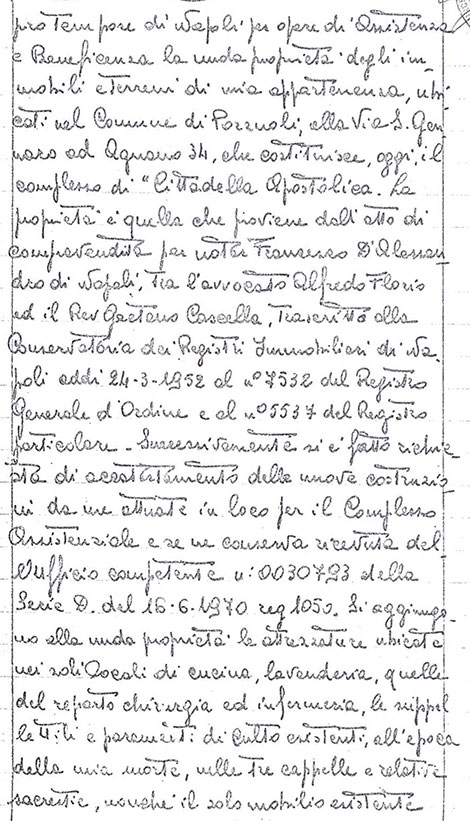 pro tempore di Napoli per opere di Assistenza
e Beneficenza la nuda proprietà degli im-
mobili e terreni di mia appartenenza, ubi-
cati nel Comune di Pozzuoli, alla Via S. Gen
naro ad Agnano 34, che costituisce, oggi, il
complesso di "Cittadella Apostolica. La
proprietà è quella che proviene dall'atto di
compravendita per notar Francesco D'Alessan
dro di Napoli, tra l'avvocato Alfredo Florio
ed il Rev Gaetano Cascella, Trascritto alla
Conservatoria dei Registri Immobiliari di Na
poli addì 24-3-1952 al n° 7532 del Registro
Generale d'Ordine e al n° 5537 del Registro
particolare - Successivamente si è fatto richie
sta di accatastamento delle nuove costruzio
ni da me attuate in loco per il Complesso
Assistenziale e se ne conserva ricevuta del
l'Ufficio competente n: 0030793 della
Serie D. del 16-6-1970 reg 1050. Si aggiungo
no alla nuda proprietà le attrezzature ubicate
nei soli locali di cucina, lavanderia, quelle
del reparto chirurgia ed infermeria, le suppel
lettili e paramenti di culto esistenti, all'epoca
della mia morte, nelle tre cappelle e relative
sacrestie, nonché il solo mobilio esistente